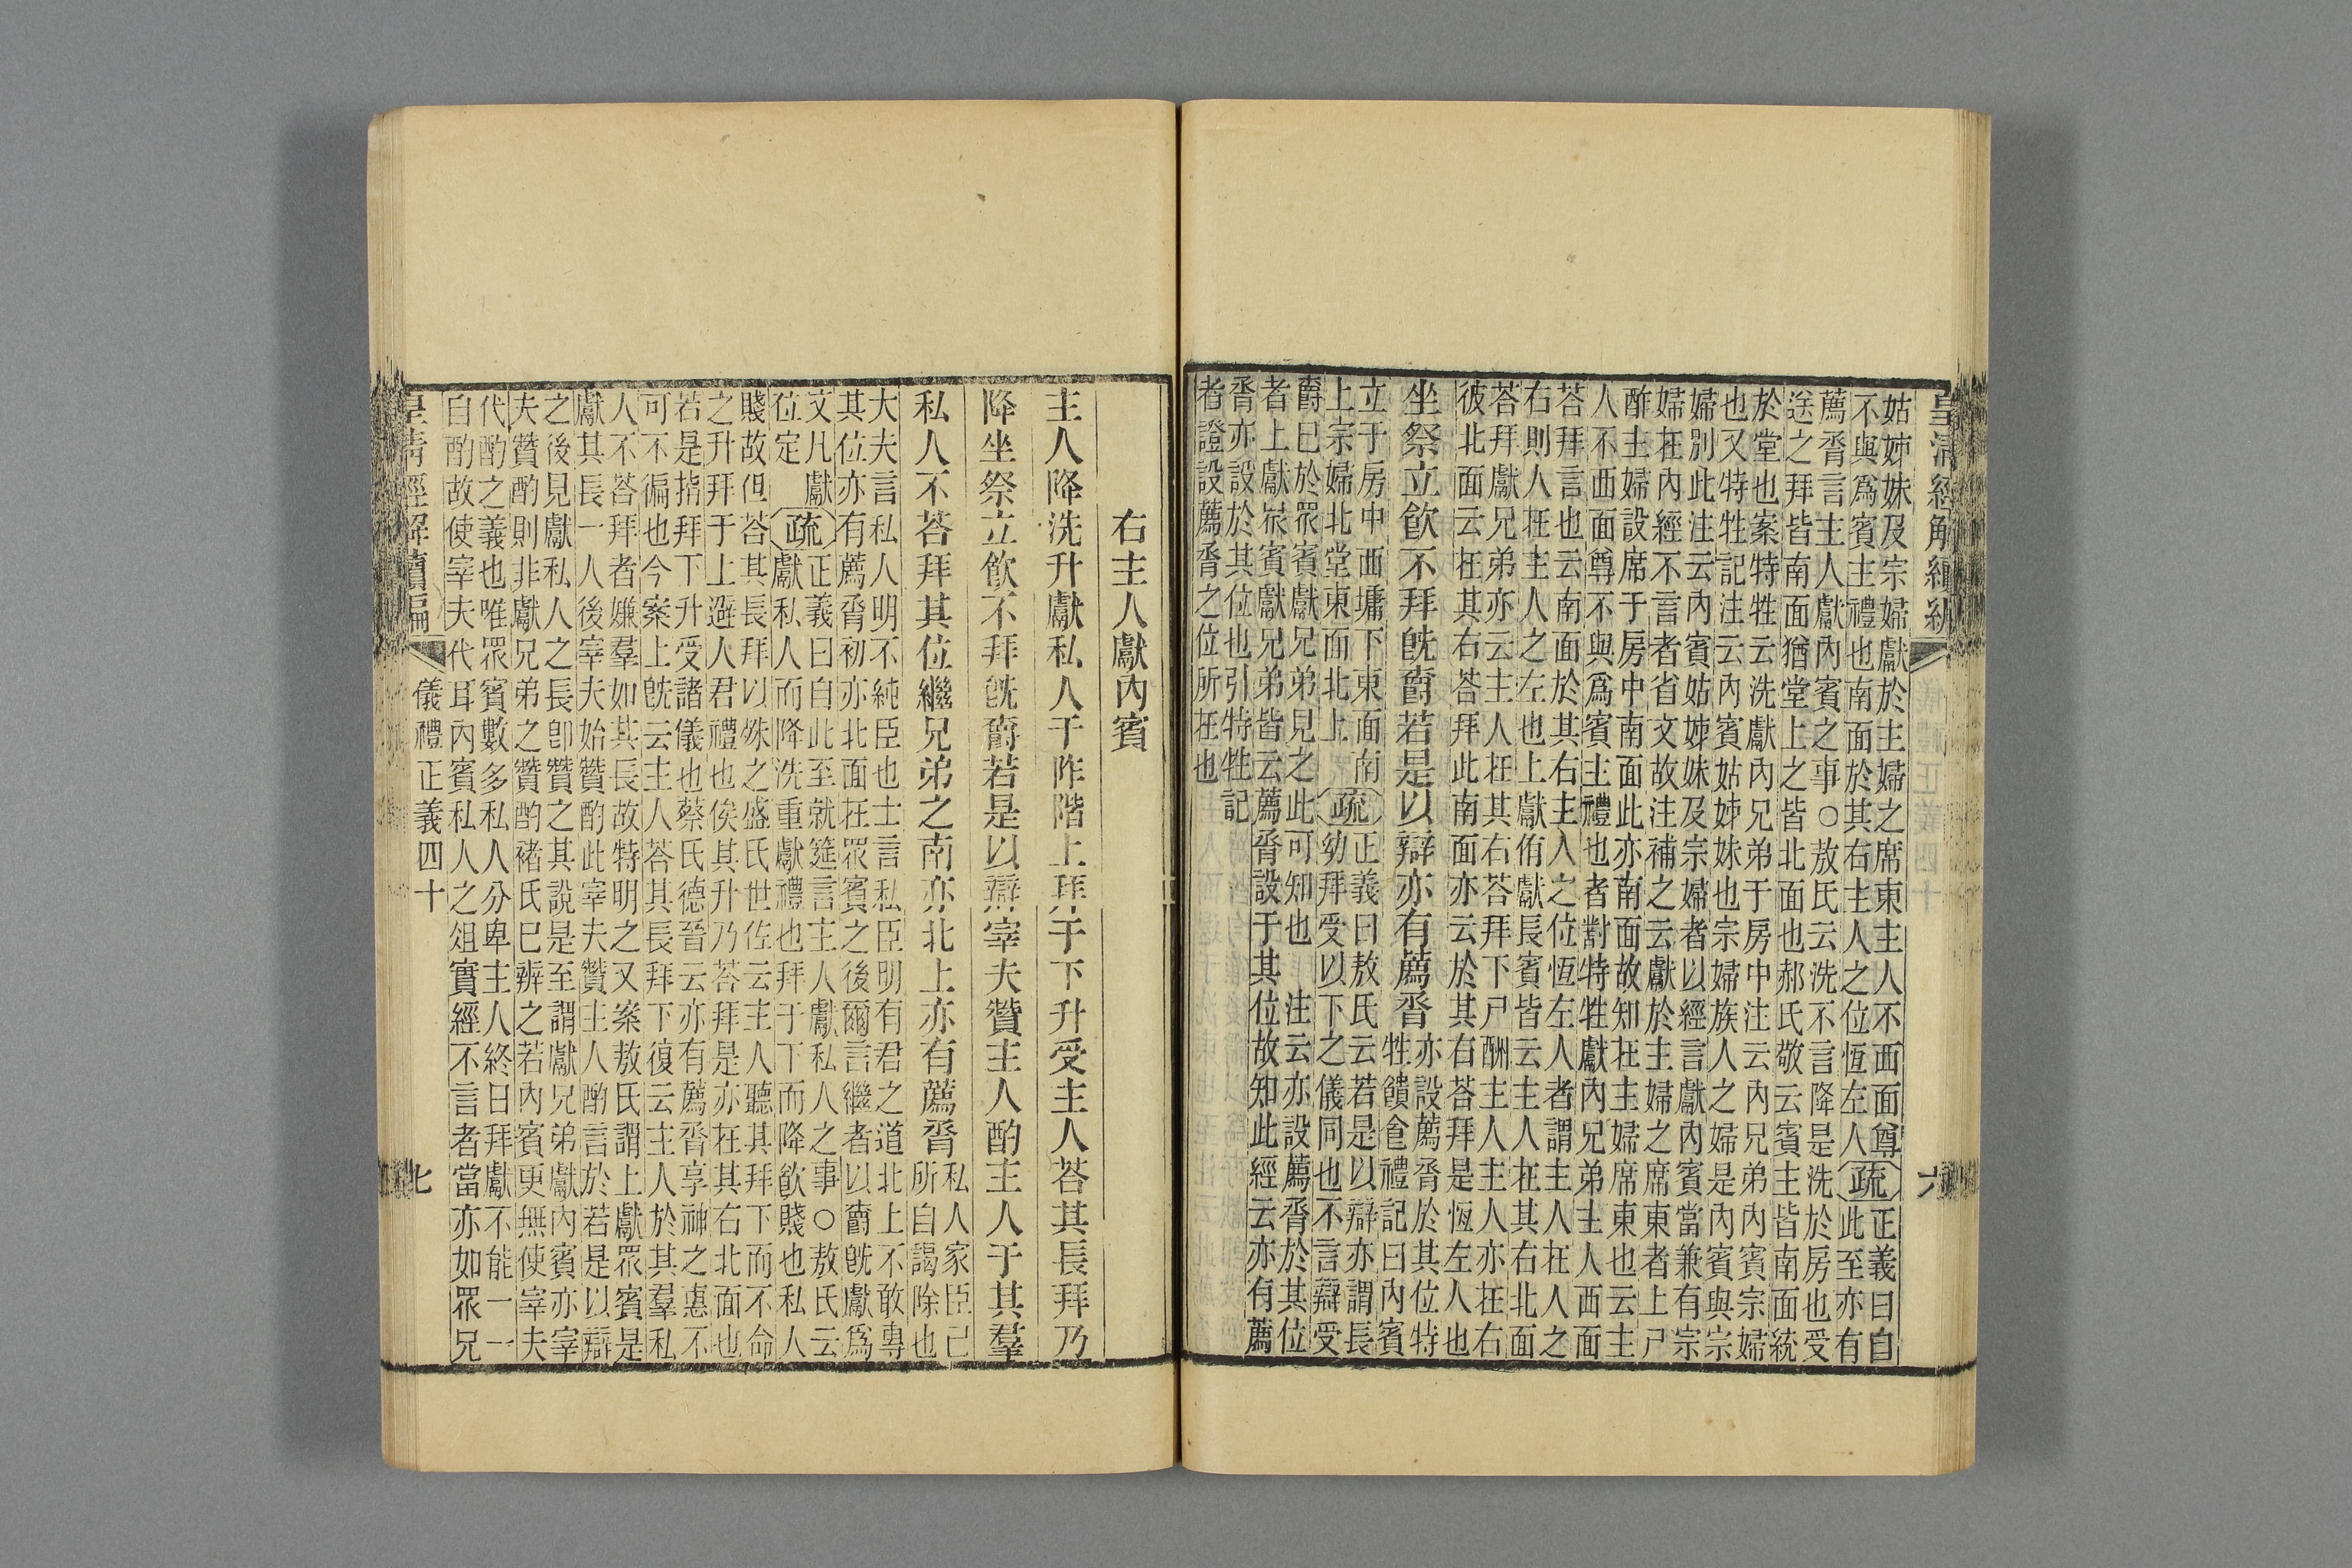 皇清經解續編
六
姑姊妹及宗婦獻於主婦之席東主人不西面尊
不與爲賓主禮也南面於其右主人之位恆左人
疏
正義曰自
此至亦有
薦脀言主人獻內賓之事○敖氏云洗不言降是洗於房也受
送之拜皆南面猶堂上之皆北面也郝氏敬云賓主皆南面統
於堂也案特牲云洗獻內兄弟于房中注云內兄弟內賓宗婦
也又特牲記注云內賓姑姊妹也宗婦族人之婦是內賓與宗
婦別此注云內賓姑姊妹及宗婦者以經言獻內賓當兼有宗
婦在內經不言者省文故注補之云獻於主婦之席東者上尸
酢主婦設席于房中南面此亦南面故知在主婦席東也云主
人不西面尊不與爲賓主禮也者對特牲獻內兄弟主人西面
荅拜言也云南面於其右主人之位恆左人者謂主人在人之
右則人在主人之左也上獻侑獻長賓皆云主人在其右北面
荅拜獻兄弟亦云主人在其右荅拜下尸酬主人主人亦在右
彼北面云在其右荅拜此南面亦云於其右荅拜是恆左人也
坐祭立飮不拜旣爵若是以辯亦有薦脀
亦設薦脀於其位特
牲饋食禮記曰內賓
立于房中西墉下東面南
上宗婦北堂東面北上
疏
正義曰敖氏云若是以辯亦謂長
幼拜受以下之儀同也不言辯受
爵已於眾賓獻兄弟見之此可知也 注云亦設薦脀於其位
者上獻眾賓獻兄弟皆云薦脀設于其位故知此經云亦有薦
脀亦設於其位也引特牲記
者證設薦脀之位所在也
右主人獻內賓
主人降洗升獻私人于阼階上拜于下升受主人荅其長拜乃
降坐祭立飮不拜旣爵若是以辯宰夫贊主人酌主人于其羣
私人不荅拜其位繼兄弟之南亦北上亦有薦脀
私人家臣己
所自謁除也
大夫言私人明不純臣也士言私臣明有君之道北上不敢專
其位亦有薦脀初亦北面在眾賓之後爾言繼者以爵旣獻爲
文凡獻
位定
疏
正義曰自此至就筵言主人獻私人之事○敖氏云
獻私人而降洗重獻禮也拜于下而降飮賤也私人
賤故但荅其長拜以殊之盛氏世佐云主人聽其拜下而不命
之升拜于上避人君禮也俟其升乃荅拜是亦在其右北面也
若是指拜下升受諸儀也蔡氏德晉云亦有薦脀享神之惠不
可不徧也今案上旣云主人荅其長拜下復云主人於其羣私
人不荅拜者嫌羣如其長故特明之又案敖氏謂上獻眾賓是
獻其長一人後宰夫始贊酌此宰夫贊主人酌言於若是以辯
之後見獻私人之長卽贊之其說是至謂獻兄弟獻內賓亦宰
夫贊酌則非獻兄弟之贊酌褚氏巳辨之若內賓更無使宰夫
代酌之義也唯眾賓數多私人分卑主人終日拜獻不能一一
自酌故使宰夫代耳內賓私人之俎實經不言者當亦如眾兄
皇清經解續編
儀禮正義四十
七